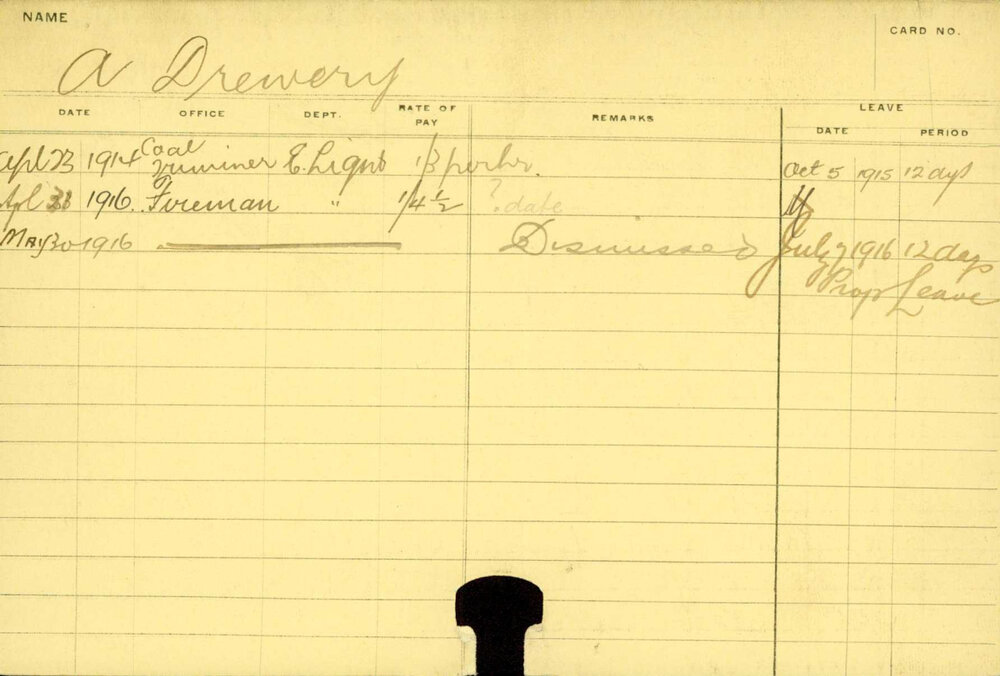 NAME
CARD NO.
A Drewery
DATE OFFICE DEPT. RATE OF PAY REMARKS LEAVE
DATE PERIOD
Apl 23 1914 Coal Trimmer E. Light 1/3 per hr. Oct 5 1915 12 days
Apl 1916. Fireman " 1/4 ½ ? date
May 30 1916 Dismissed July 7 1916 12 days
Prop Leave